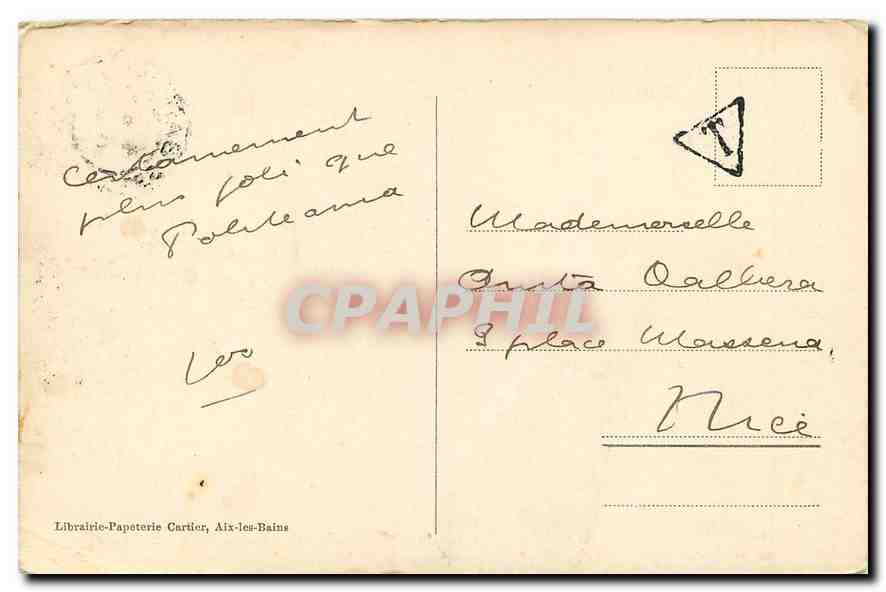 certainement
plus joli que
Politeama
Leo
Librairie-Papeterie Cartier, Aix-les-Bains
T
Mademoiselle
Anita Dalbera
9 place Massena.
Nice
CPAPHIL